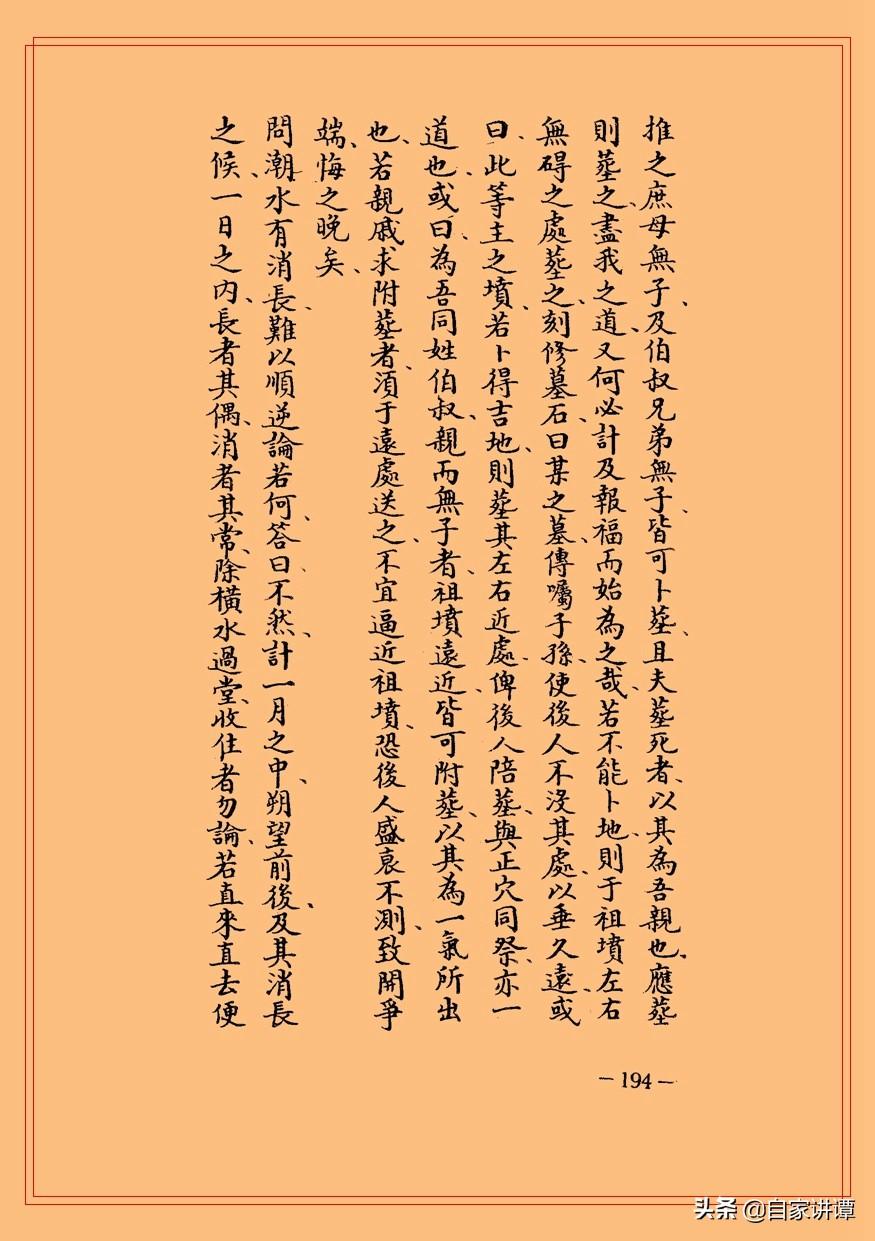 推之庶母無子、及伯叔兄弟無子、皆可卜塟、且夫塟死者、以其為吾親也、應塟
則塟之、盡我之道、又何必計及報福而始為之哉、若不能卜地、則于祖墳左右
無碍之處塟之、刻修墓石、曰某之墓、傳囑子孫、使後人不沒其處、以垂久遠、或
曰、此等主之墳、若卜得吉地、則塟其左右近處、俾後人陪塟、與正穴同祭、亦一
道也、或曰、為吾同姓伯叔、親而無子者、祖墳遠近、皆可附塟、以其為一氣所出
也、若親戚求附塟者、須于遠處送之、不宜逼近祖墳、恐後人盛衰不測、致開爭
端、悔之晚矣、
問潮水有消長、難以順逆論若何、答曰、不然、計一月之中、朔望前後、及其消長
之候、一日之內、長者其偶、消者其常、除橫水過堂、收住者勿論、若直來直去便
－194－
头条 @自家讲谭